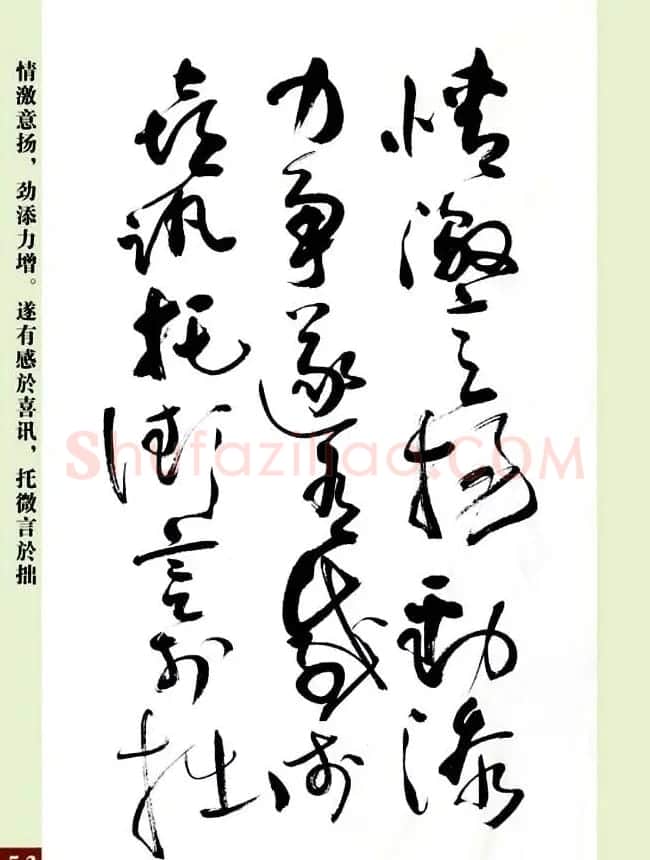 情激意扬劲添
力争遂有感於
喜讯托微言於拙
情激意扬，劲添力增。遂有感於喜讯，托微言於拙
Shufaziliao.COM